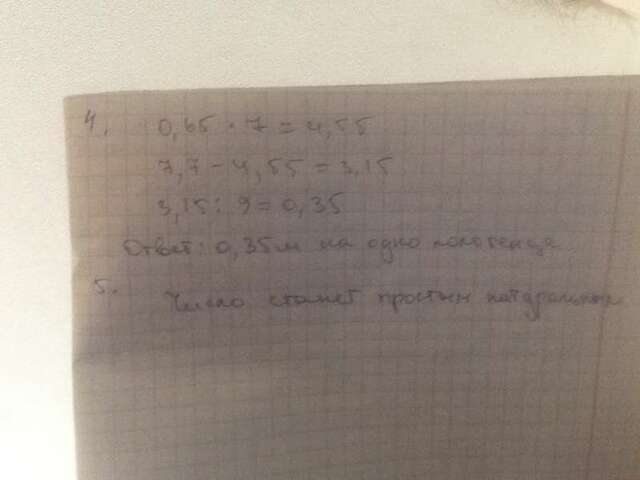 4. 0,65 · 7 = 4,55
7,7 - 4,55 = 3,15
3,15 : 9 = 0,35
Ответ: 0,35м на одно полотенце
5. Число станет простым натуральным